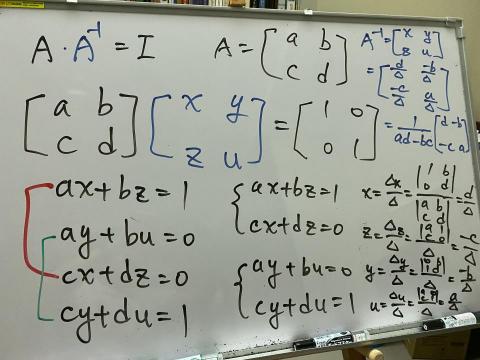 A · A⁻¹ = I
A = [a b; c d]
A⁻¹ = [x y; z u]
= [d/Δ -b/Δ; -c/Δ a/Δ]
= 1/(ad-bc) [d -b; -c a]
[a b; c d] [x y; z u] = [1 0; 0 1]
ax+bz=1
ay+bu=0
cx+dz=0
cy+du=1
{ax+bz=1
cx+dz=0
{ay+bu=0
cy+du=1
x = Δx/Δ = |1 b; 0 d| / |a b; c d| = d/Δ
z = Δz/Δ = |a 1; c 0| / Δ = -c/Δ
y = Δy/Δ = |0 b; 1 d| / Δ = -b/Δ
u = Δu/Δ = |a 0; c 1| / Δ = a/Δ